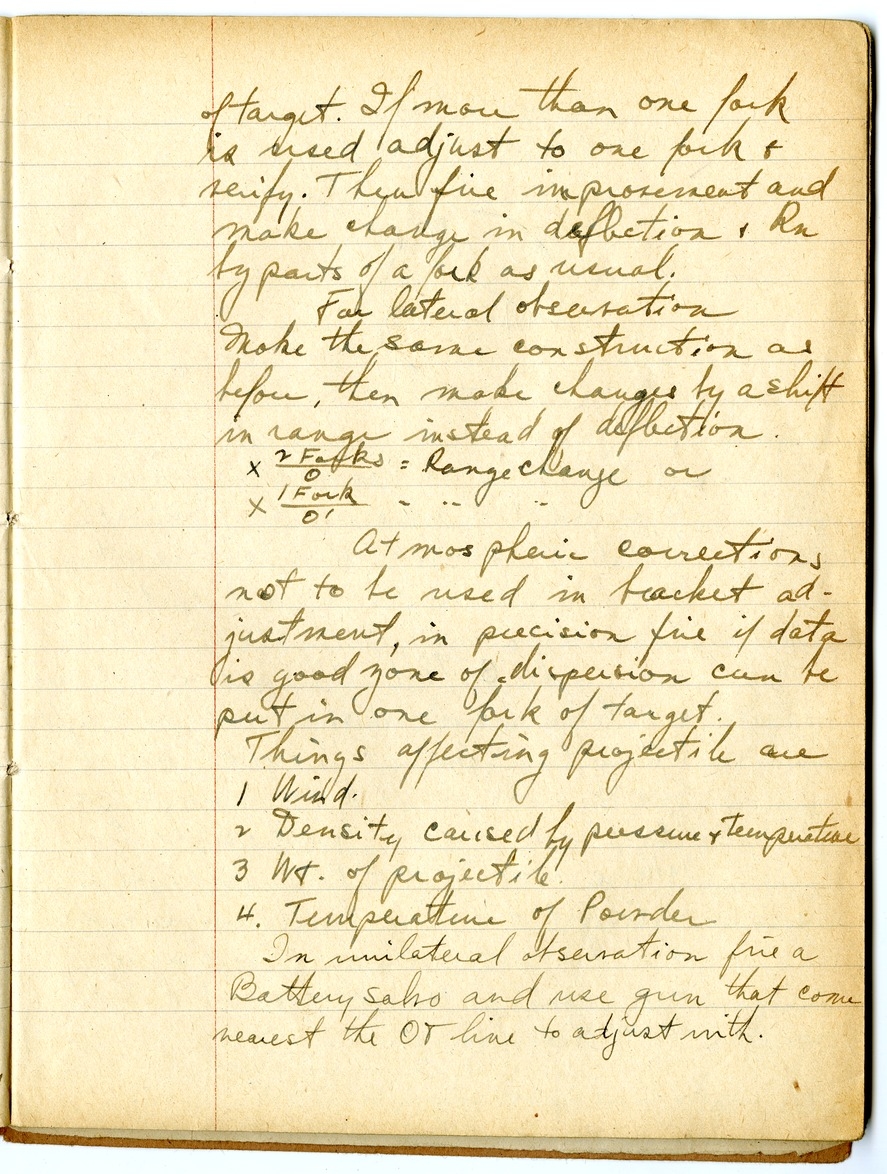 of target. If more than one fork
is used adjust to one fork &
verify. Then fire improvement and
make change in deflection & Rn
by parts of a fork as usual.
For lateral observation
Make the same construction as
before, then make changes by a shift
in range instead of deflection.
x 2 Forks/0 = Range change or
x 1 Fork/0' " " "
Atmospheric corrections
not to be used in bracket ad-
justment, in precision fire if data
is good zone of dispersion can be
put in one fork of target.
Things affecting projectile are
1 Wind.
2 Density caused by pressure & temperature
3 Wt. of projectile.
4. Temperature of Powder
In unilateral observation fire a
Battery salvo and use gun that come
nearest the OT line to adjust with.